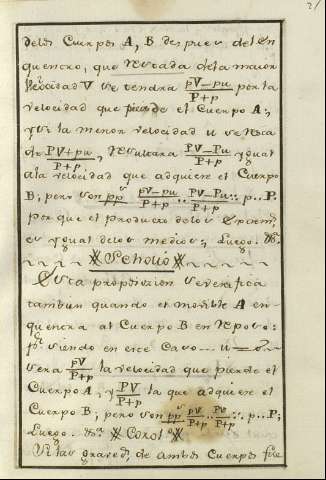 21
delos Cuerpos A, B despues del en
quentro; que restada dela maior
Velocidad V se tendra pV-pu/P+p por la
velocidad que pierde el Cuerpo A;
y si la menor velocidad u se resta
de PV+pu/P+p, resultara PV-Pu/P+p ygual
ala velocidad que adquiere el Cuerpo
B; pero son ppr pV-pu/P+p : PV-Pu/P+p :: p..P.
por que el producto delos extrem,
es ygual delos medios; Luego. &a.
Scholio
Esta proposizion se verifica
tambien quando el movible A en-
quentra al Cuerpo B en reposo:
pr siendo en este caso u=o
sera pV/P+p la velocidad que pierde el
Cuerpo A, y PV/P+p la que adquiere el
Cuerpo B; pero son ppr pV/P+p : PV/P+p :: p..P;
Luego. &a Corol o
Si las graveds de ambos Cuerpos fue